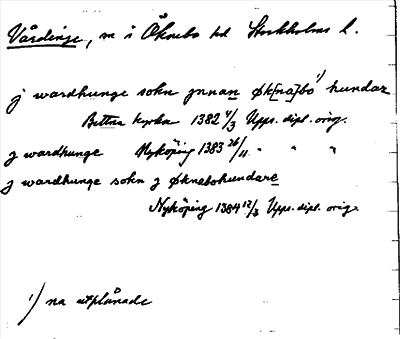 Vårdinge, sn i Öknebo hd Stockholms l.
j wardhunge sokn jnnan øk[na]bo ¹⁾ hundar
Bettna kyrka 1382 4/3 Upps. dipl. orig.
j wardhunge Nyköping 1383 26/11 " " "
j wardhunge sokn j øknabohundare
Nyköping 1384 12/3 Upps. dipl. orig.
¹⁾ na utplånade